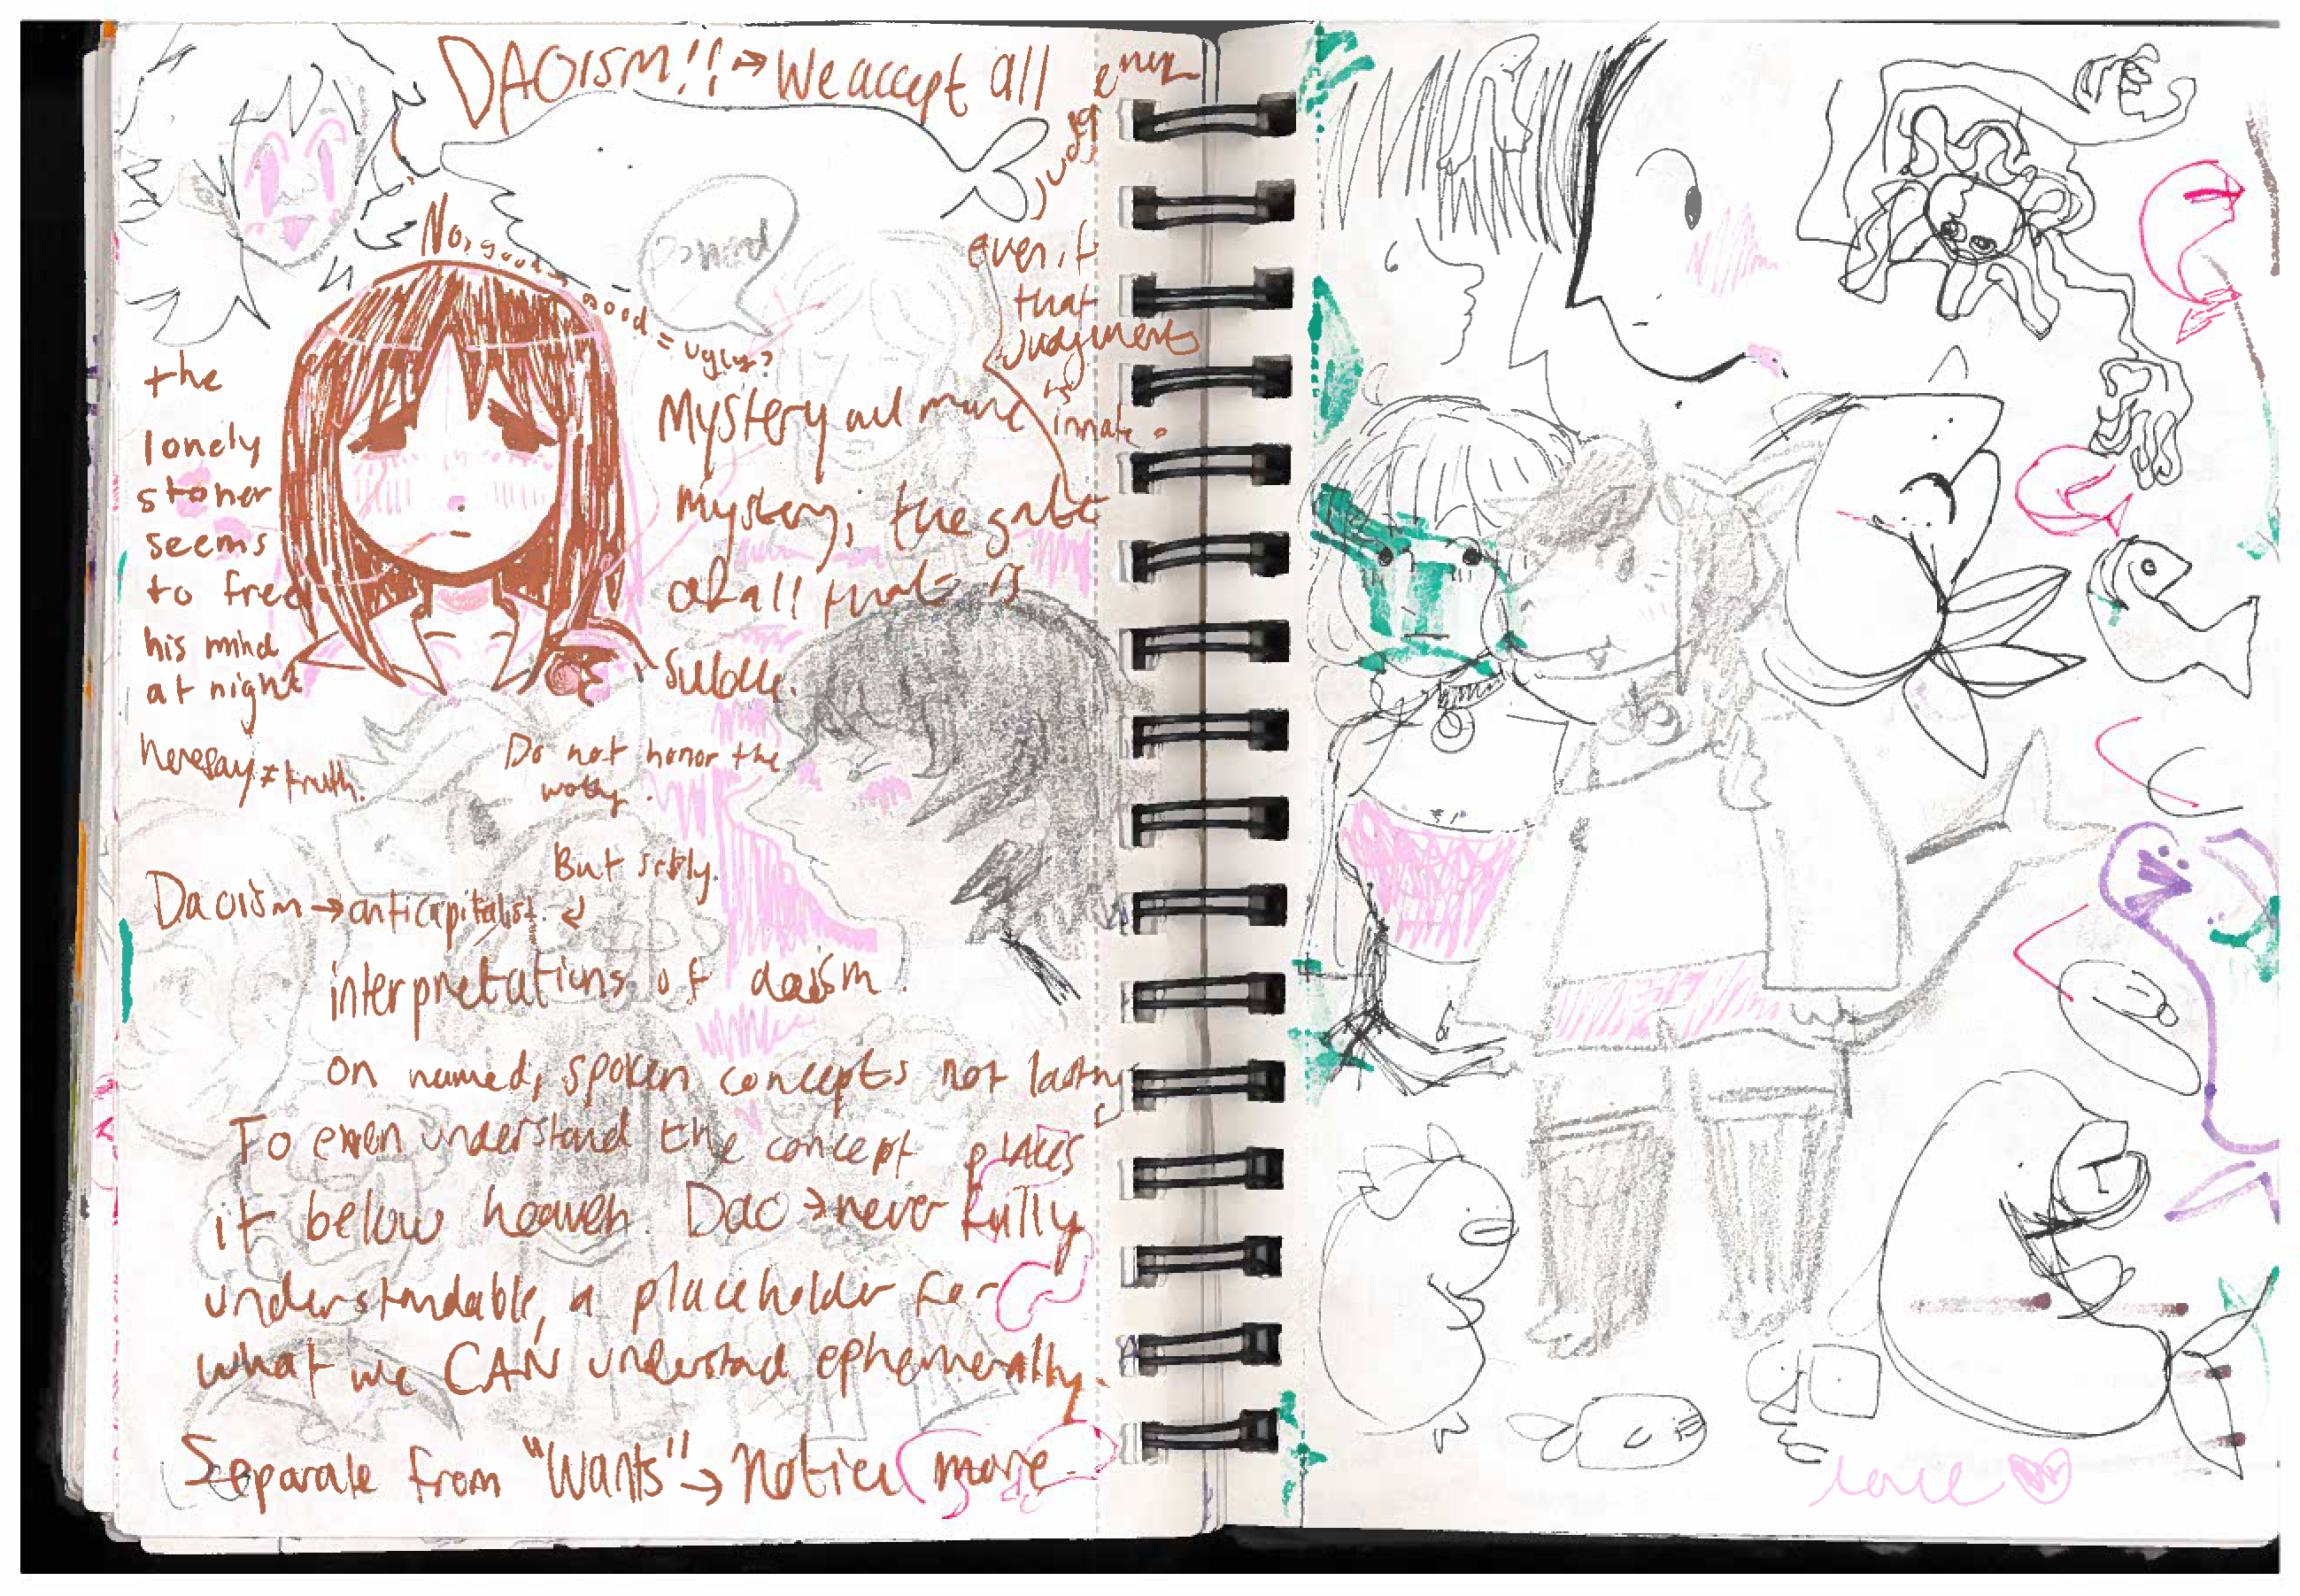 DAOISM!! → We accept all
judge
even if
that
judgement
is
innate.
No, good → good = ugly?
the
lonely
stoner
seems
to free
his mind
at night
Mystery and more
mystery, the gate
of all that is
Subtle.
heresay ≠ truth.
Do not honor the
But
Daoism → anticapitalist
interpretations of daoism.
on named, spoken concepts not lasting
To even understand the concept places
it below heaven. Dao → never fully
understandable, a placeholder for
what we CAN understad ephemerally.
Separate from "Wants" → notice more
love